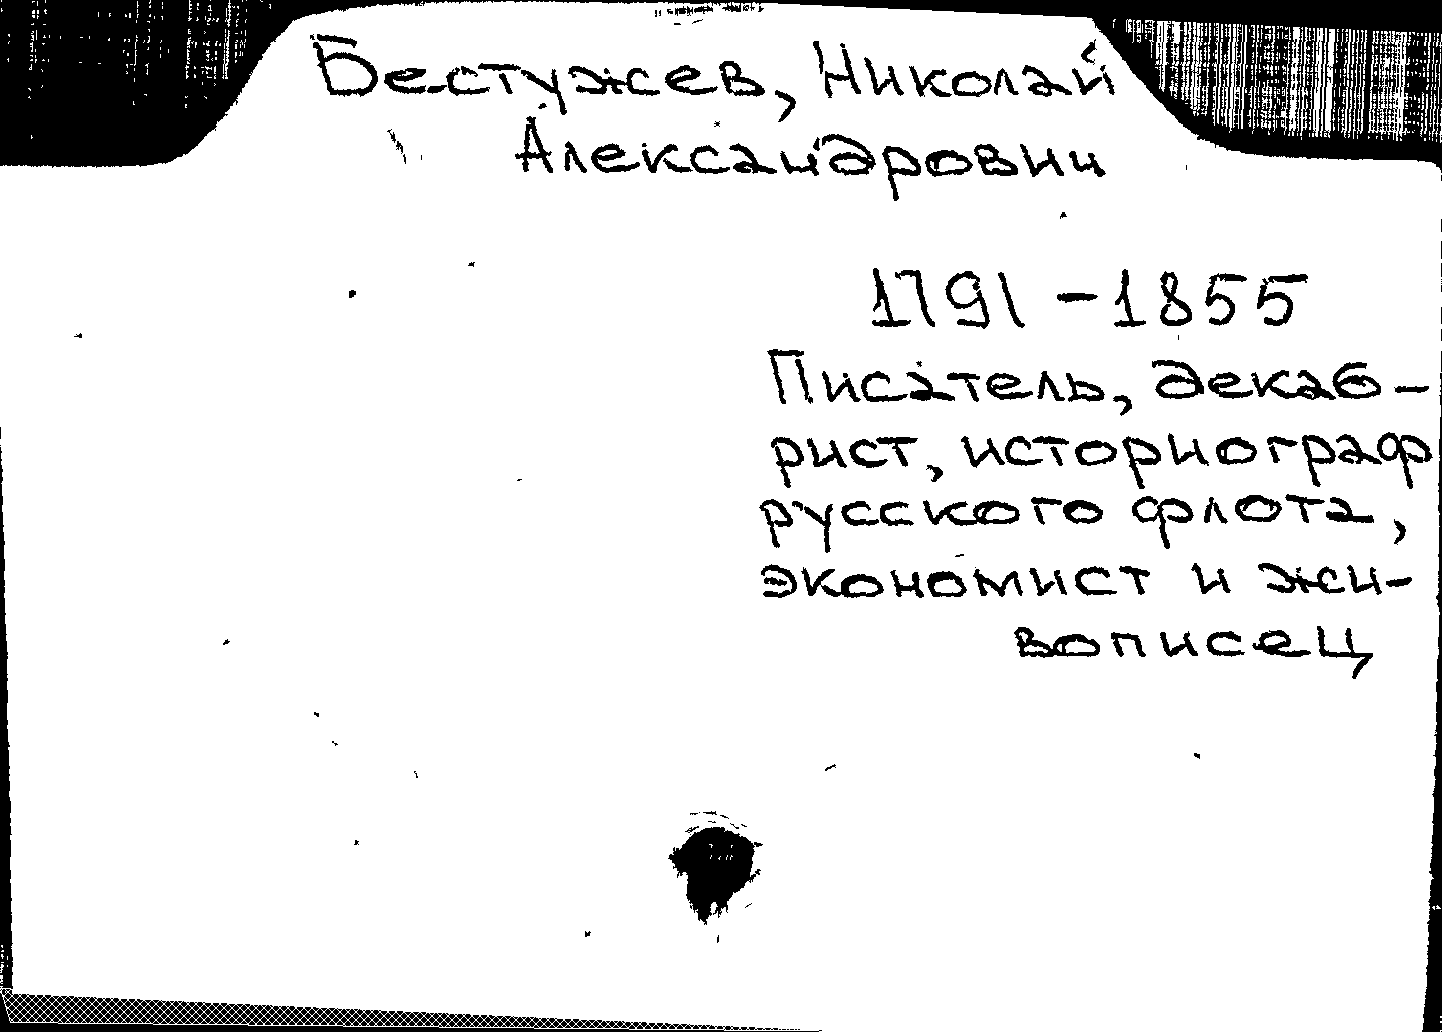 Бестужев, Николай
Александрович
1791 – 1855
Писатель, декаб-
рист, историограф
русского флота,
экономист и жи-
вописец